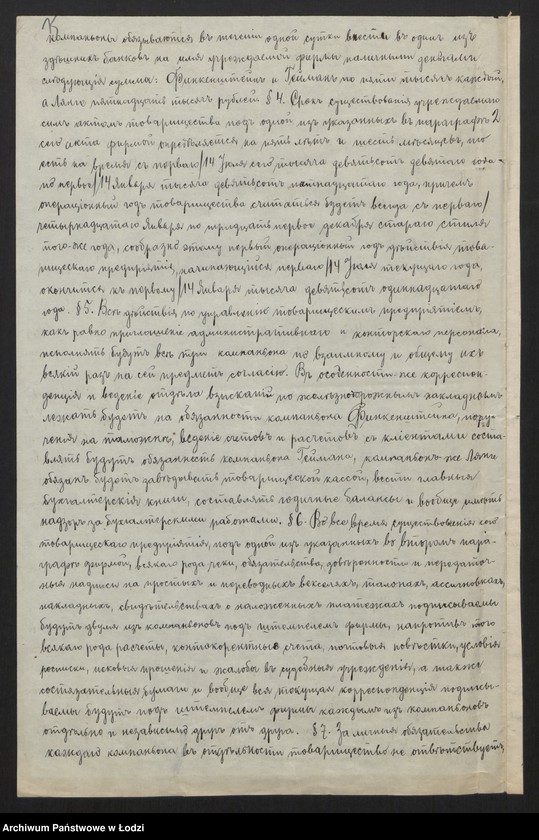 Компаньоны обязываются въ теченіи одной сутки внести въ одинъ изъ
здѣшнихъ банковъ на имя учреждаемой фирмы наличными деньгами
слѣдующія суммы: Финкенштейнъ и Гейманъ по пяти тысячъ каждый,
а Лянге пятнадцать тысячъ рублей § 4. Срокъ существованія учреждаемаго
симъ актомъ товарищества подъ одной изъ указанныхъ въ параграфѣ 2
сего акта фирмой опредѣляется на пять лѣтъ и шесть мѣсяцевъ, то
есть на время съ перваго/14 Іюля сего тысяча девятьсотъ девятаго года
по первое/14 Января тысяча девятьсотъ пятнадцатаго года, причемъ
операціонный годъ товарищества считаться будетъ всегда съ перваго/
четырнадцатаго Января по тридцать первое декабря стараго стиля
того-же года, сообразно этому первый операціонный годъ дѣйствія това-
рищескаго предпріятія, начинающійся перваго/14 Іюля текущаго года,
окончится къ первому/14 Января тысяча девятьсотъ одиннадцатаго
года. § 5. Всѣ дѣйствія по управленію товарищескимъ предпріятіемъ,
какъ равно приглашеніе административнаго и конторскаго персонала,
исполнять будутъ всѣ три компаньона по взаимному и общему ихъ
всякій разъ на сей предметъ согласію. Въ особенности-же корреспон-
денція и веденіе отдѣла взысканій по желѣзнодорожнымъ накладнымъ
лежать будетъ на обязанности компаньона Финкенштейна, пору-
ченія на таможнѣ, веденіе счетовъ и расчетовъ съ кліентами соста-
влять будутъ обязанность компаньона Геймана, компаньонъ-же Лянге
обязанъ будетъ завѣдывать товарищеской кассой, вести главныя
бухгалтерскія книги, составлять годичные балансы и вообще имѣть
надзоръ за бухгалтерскими работами. § 6. Во все время существованія сего
товарищескаго предпріятія, подъ одной изъ указанныхъ во второмъ пара-
графѣ фирмой, всякаго рода чеки, обязательства, довѣренности и передаточ-
ныя надписи на простыхъ и переводныхъ векселяхъ, талонахъ, ассигновкахъ,
накладныхъ, свидѣтельствахъ о наложенныхъ платежахъ подписываемы
будутъ двумя изъ компаньоновъ подъ штемпелемъ фирмы, напротивъ того
всякаго рода расчеты, контокорентные счета, почтовыя повѣстки, условія
росписки, исковыя прошенія и жалобы въ судебныя учрежденія, а также
состязательныя бумаги и вообще вся текущая корреспонденція подписы-
ваемы будутъ подъ штемпелемъ фирмы каждымъ изъ компаньоновъ
отдѣльно и независимо другъ отъ друга. § 7. За личныя обязательства
каждаго компаньона въ отдѣльности товарищество не отвѣтствуетъ
Archiwum Państwowe w Łodzi